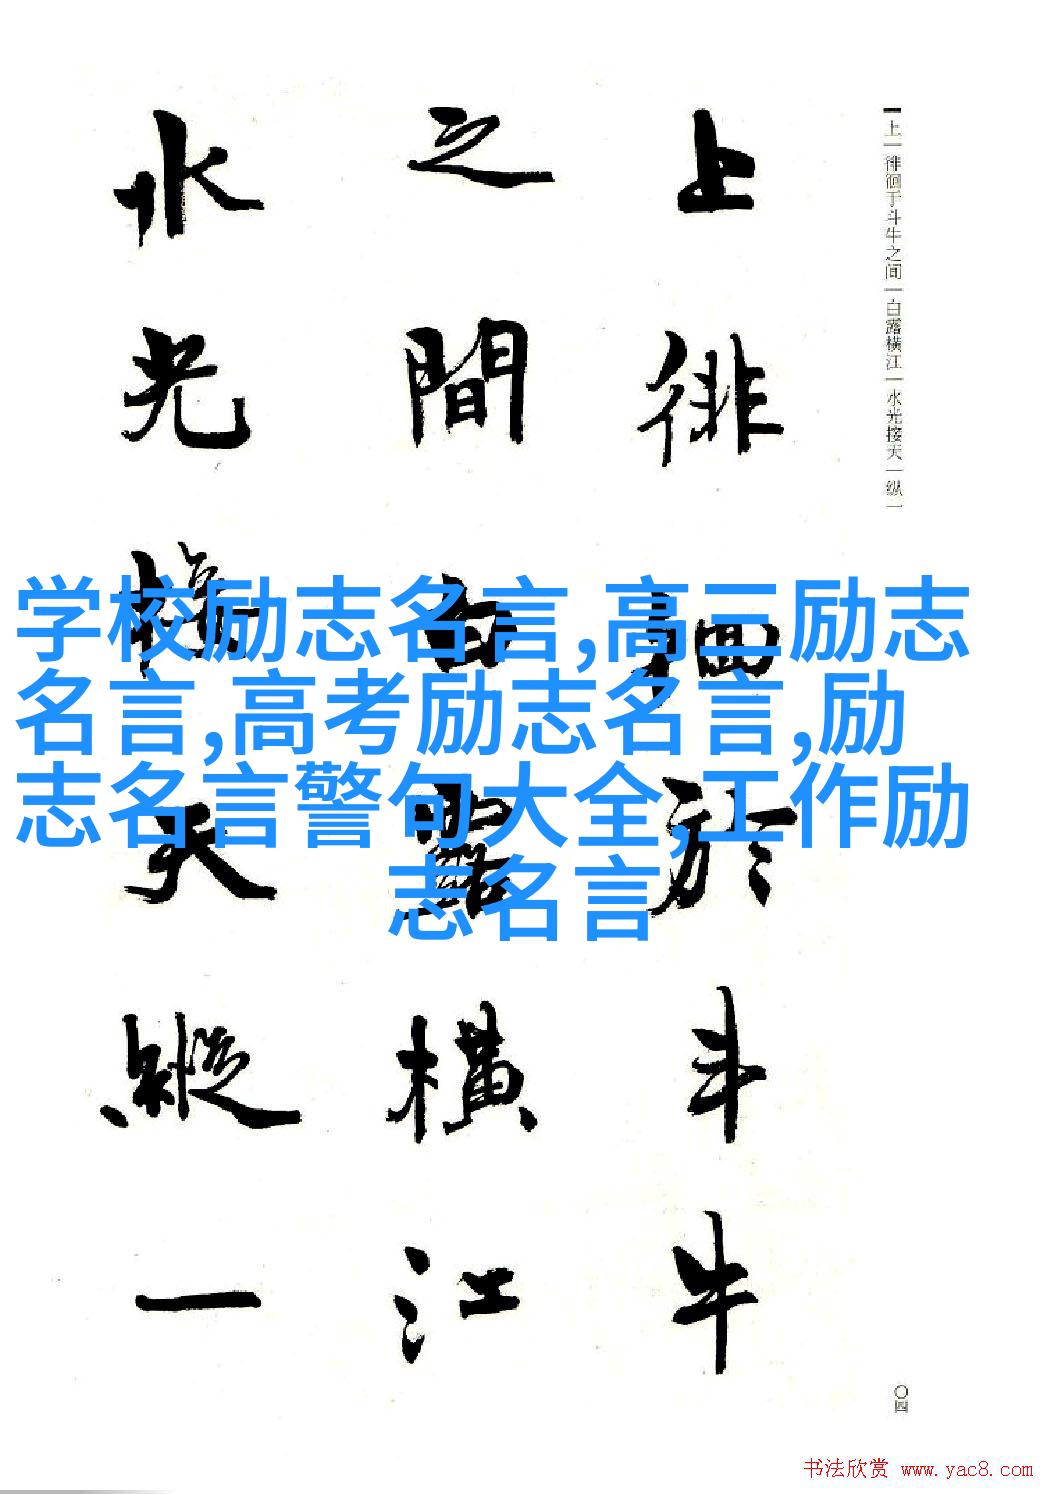 上徘徊於斗牛
之間白露橫江
水光接天縱一
上|徘徊于斗牛之间|白露横江|水光接天|纵一
学校励志名言,高三励志
名言,高考励志名言,励
志名言警句大全,工作励
志名言
〇四
书法欣赏 www.yac8.com